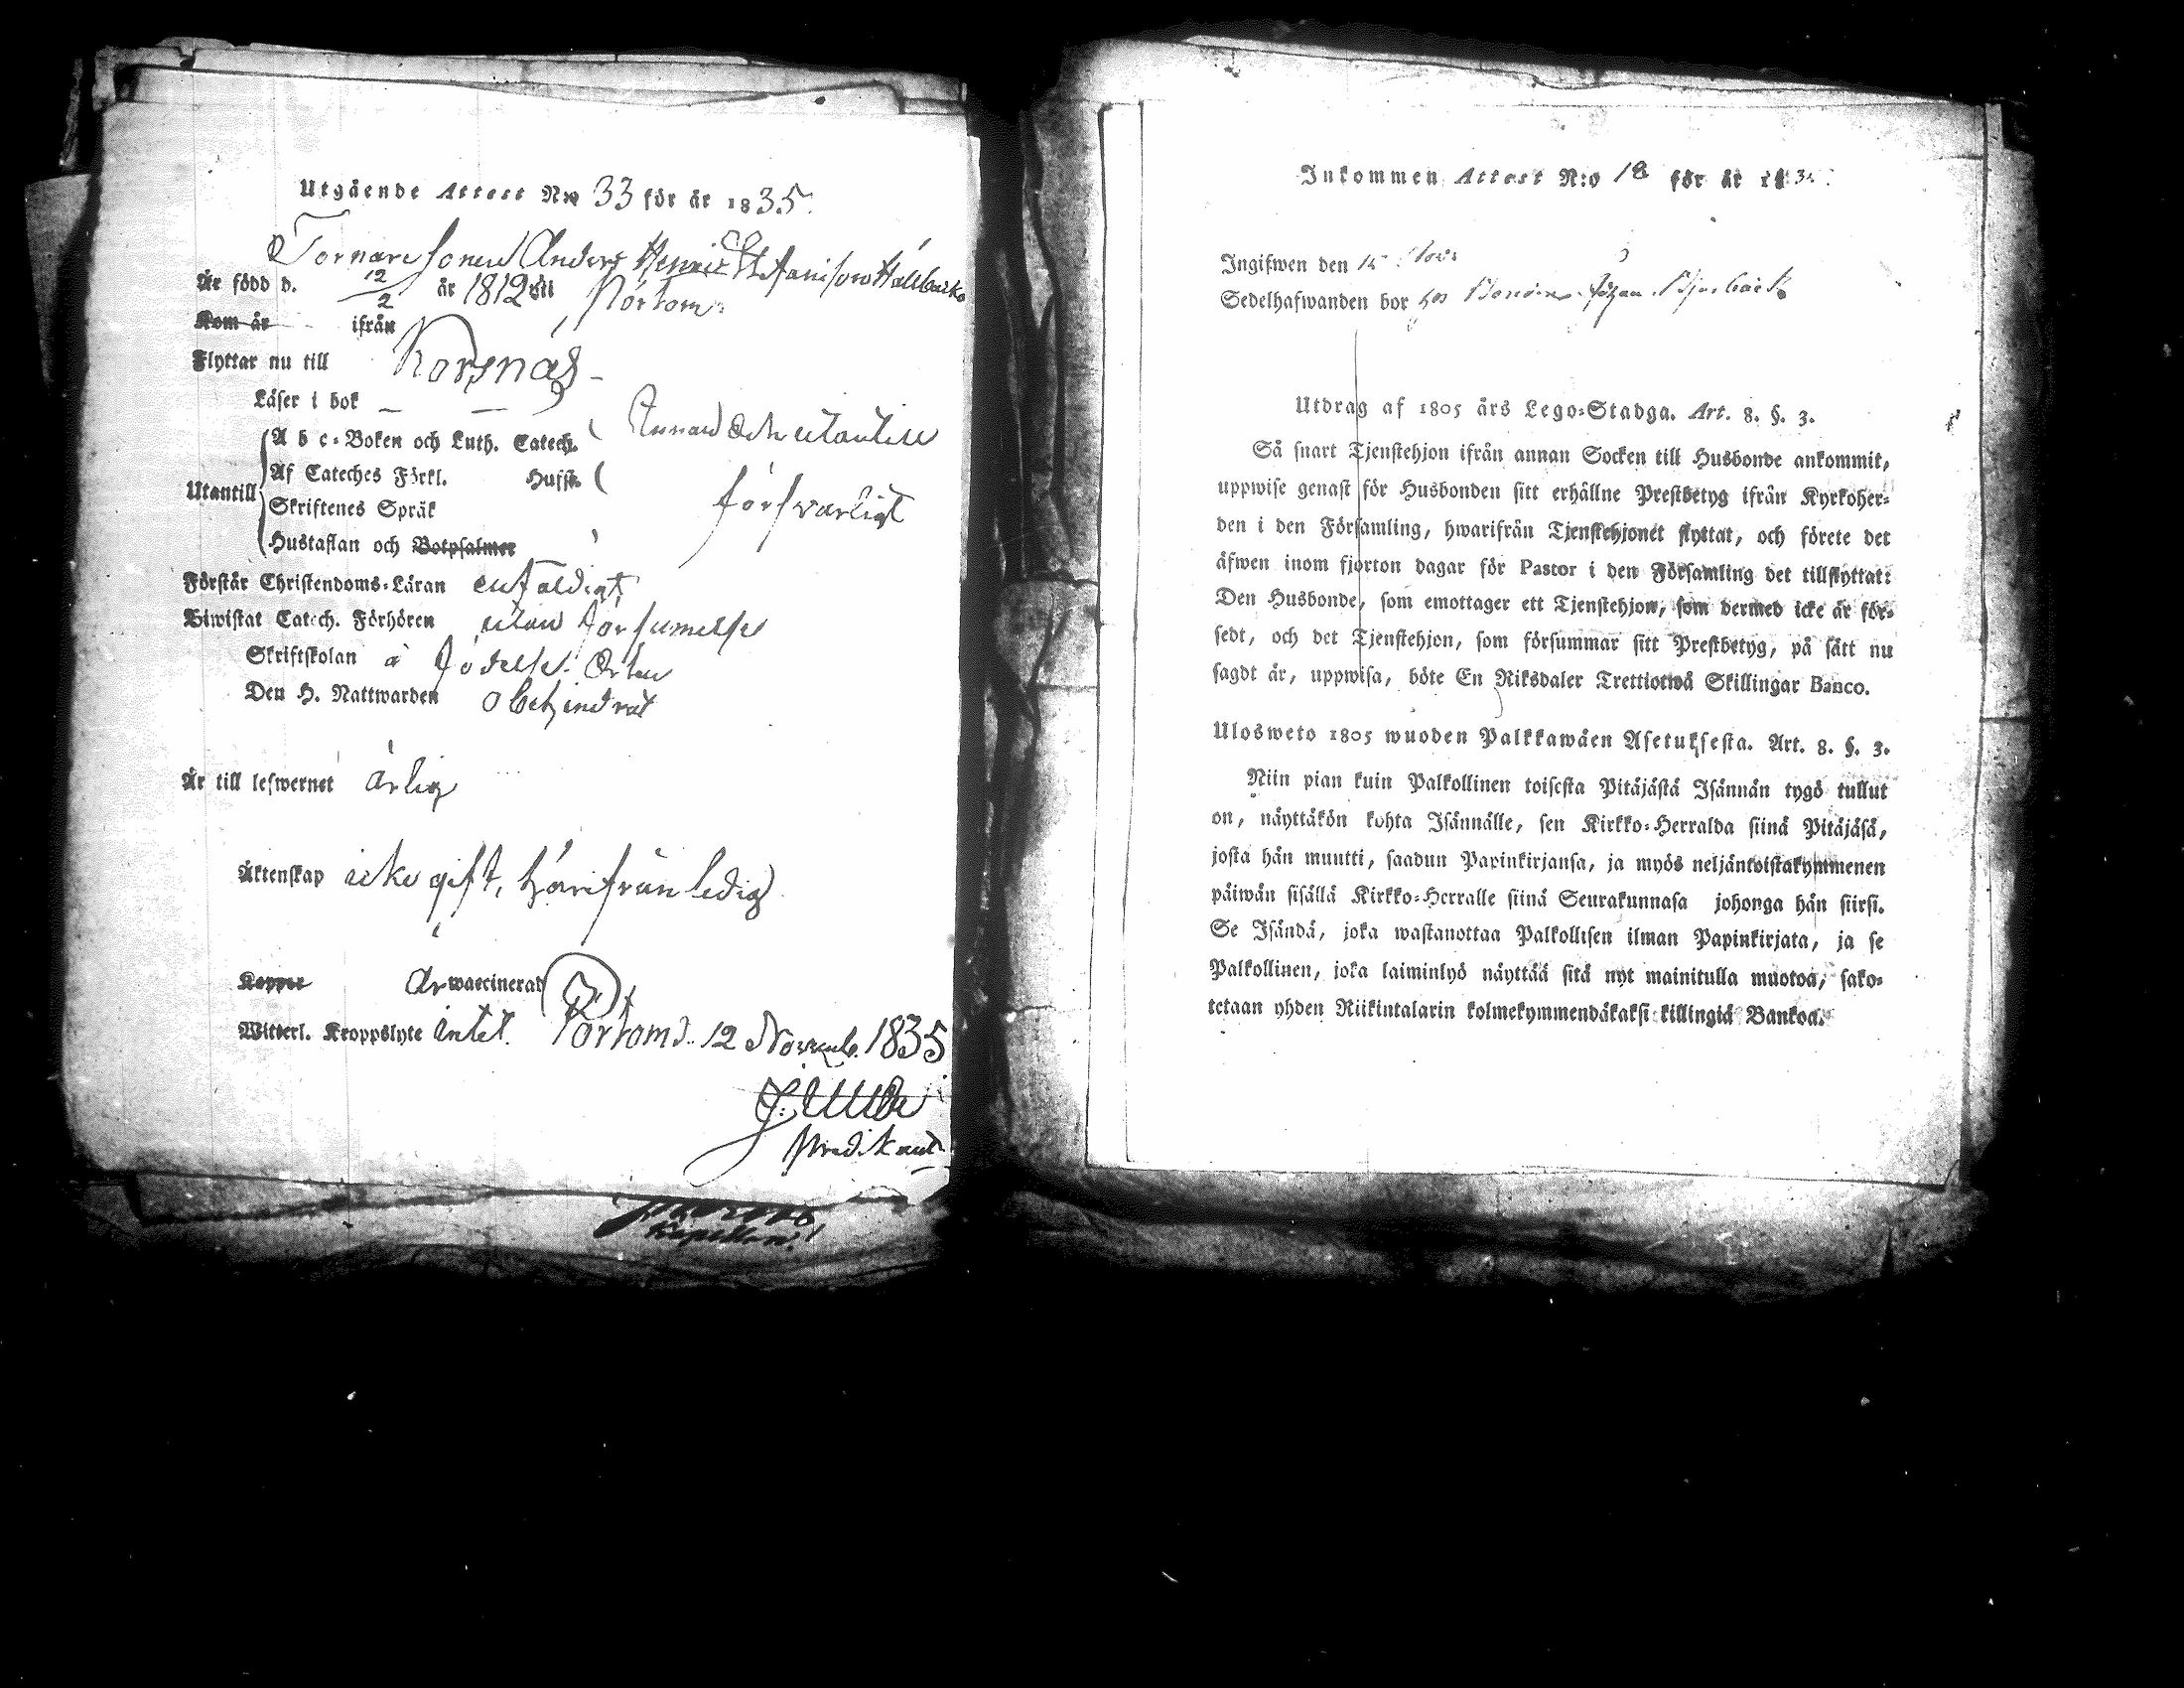 Utgående Attest N:o 33 för år 1835.
Tornaresonen Anders Henric Stefanison Hällback
Är född d. 12/2 år 1812 uti Pörtom
Kom år ifrån
Flyttar nu till Korsnäs
Läser i bok
A b c-Boken och Luth. Catech. innan och utantill
Af Cateches Förkl. Husft. försvarligt
Utantill
Skriftenes Språk
Hustaflan och Botpsalmer
Förstår Christendoms-Läran enfaldigt
Biwistat Catech. Förhören utan försumelse
Skriftskolan å födelse Orten
Den H. Nattwarden obehindrat
Är till lefwernet ärlig
Äktenskap icke gift, härifrån ledig
Koppor Är waccinerad
Witterl. Kroppslyte intet. Pörtom d. 12 Novemb. 1835
Predikant
Kapellan
Inkommen Attest N:o 18 för år 1835.
Ingifwen den 15 Nov.
Sedelhafwanden bor hos Bonden Johan
Utdrag af 1805 års Lego-Stadga. Art. 8. §. 3.
Så snart Tjenstehjon ifrån annan Socken till Husbonde ankommit,
uppwise genast för Husbonden sitt erhållne Prestbetyg ifrån Kyrkoher-
den i den Församling, hwarifrån Tjenstehjonet flyttat, och förete det
äfwen inom fjorton dagar för Pastor i den Församling det tillflyttat:
Den Husbonde, som emottager ett Tjenstehjon, som dermed icke är för-
sedt, och det Tjenstehjon, som försummar sitt Prestbetyg, på sätt nu
sagdt är, uppwisa, böte En Riksdaler Trettiotwå Skillingar Banco.
Ulosweto 1805 wuoden Palkkawäen Asetuksesta. Art. 8. §. 3.
Niin pian kuin Palkollinen toisesta Pitäjästä Isännän tygö tullut
on, näyttäkön kohta Isännälle, sen Kirkko-Herralda siinä Pitäjäsä,
josta hän muutti, saadun Papinkirjansa, ja myös neljäntoistakymmenen
päiwän sisällä Kirkko-Herralle siinä Seurakunnasa johonga hän siirsi.
Se Isändä, joka wastanottaa Palkollisen ilman Papinkirjata, ja se
Palkollinen, joka laiminlyö näyttää sitä nyt mainitulla muotoa, sako-
tetaan yhden Riikintalarin kolmekymmendäkaksi killingiä Bankoa.